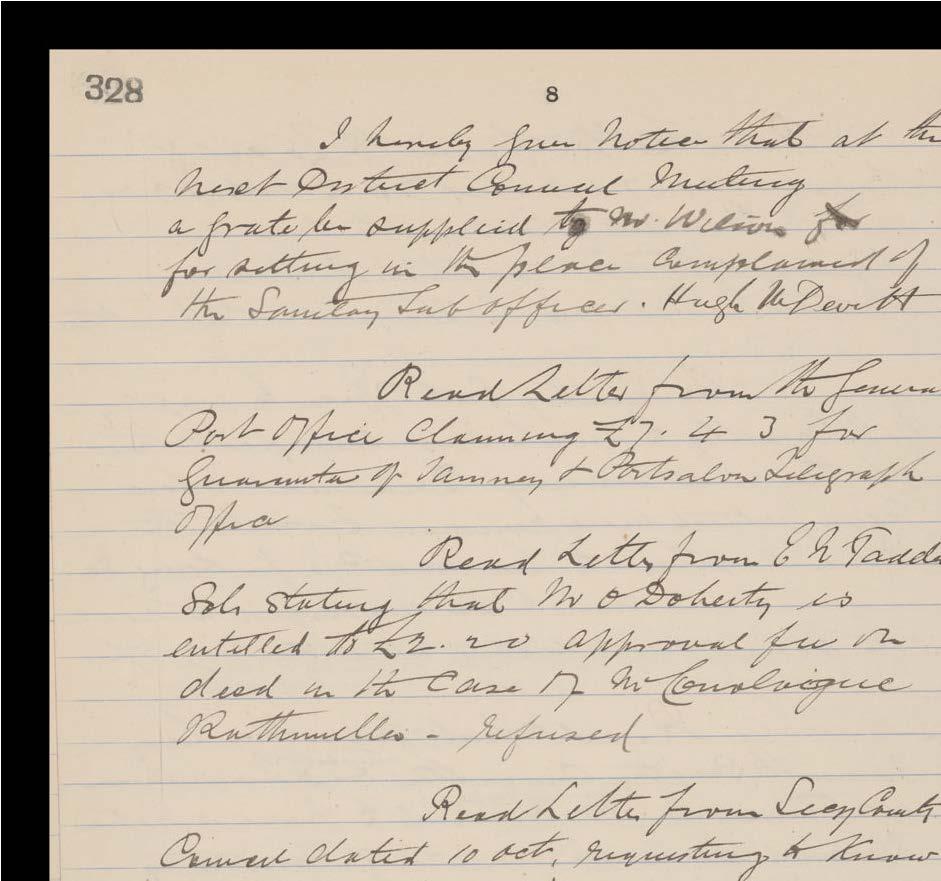 328
8
I hereby give Notice that at the
next District Council Meeting
a grate be supplied to Mr. Wilson for
for setting in the place complained of
the Sanitary Sub officer. Hugh McDevitt
Read Letter from the Genera
Post Office Claiming £7. 4 3 for
Guarantee of Tamney & Portsalon Telegraph
Office
Read Letter from E
Solr stating that Mr O Doherty is
entitled to £2. 2 0 approval fee on
deed in the Case of McConologue
Rathmullen - refused
Read Letter from Secy County
Council dated 10 Oct, requesting to know